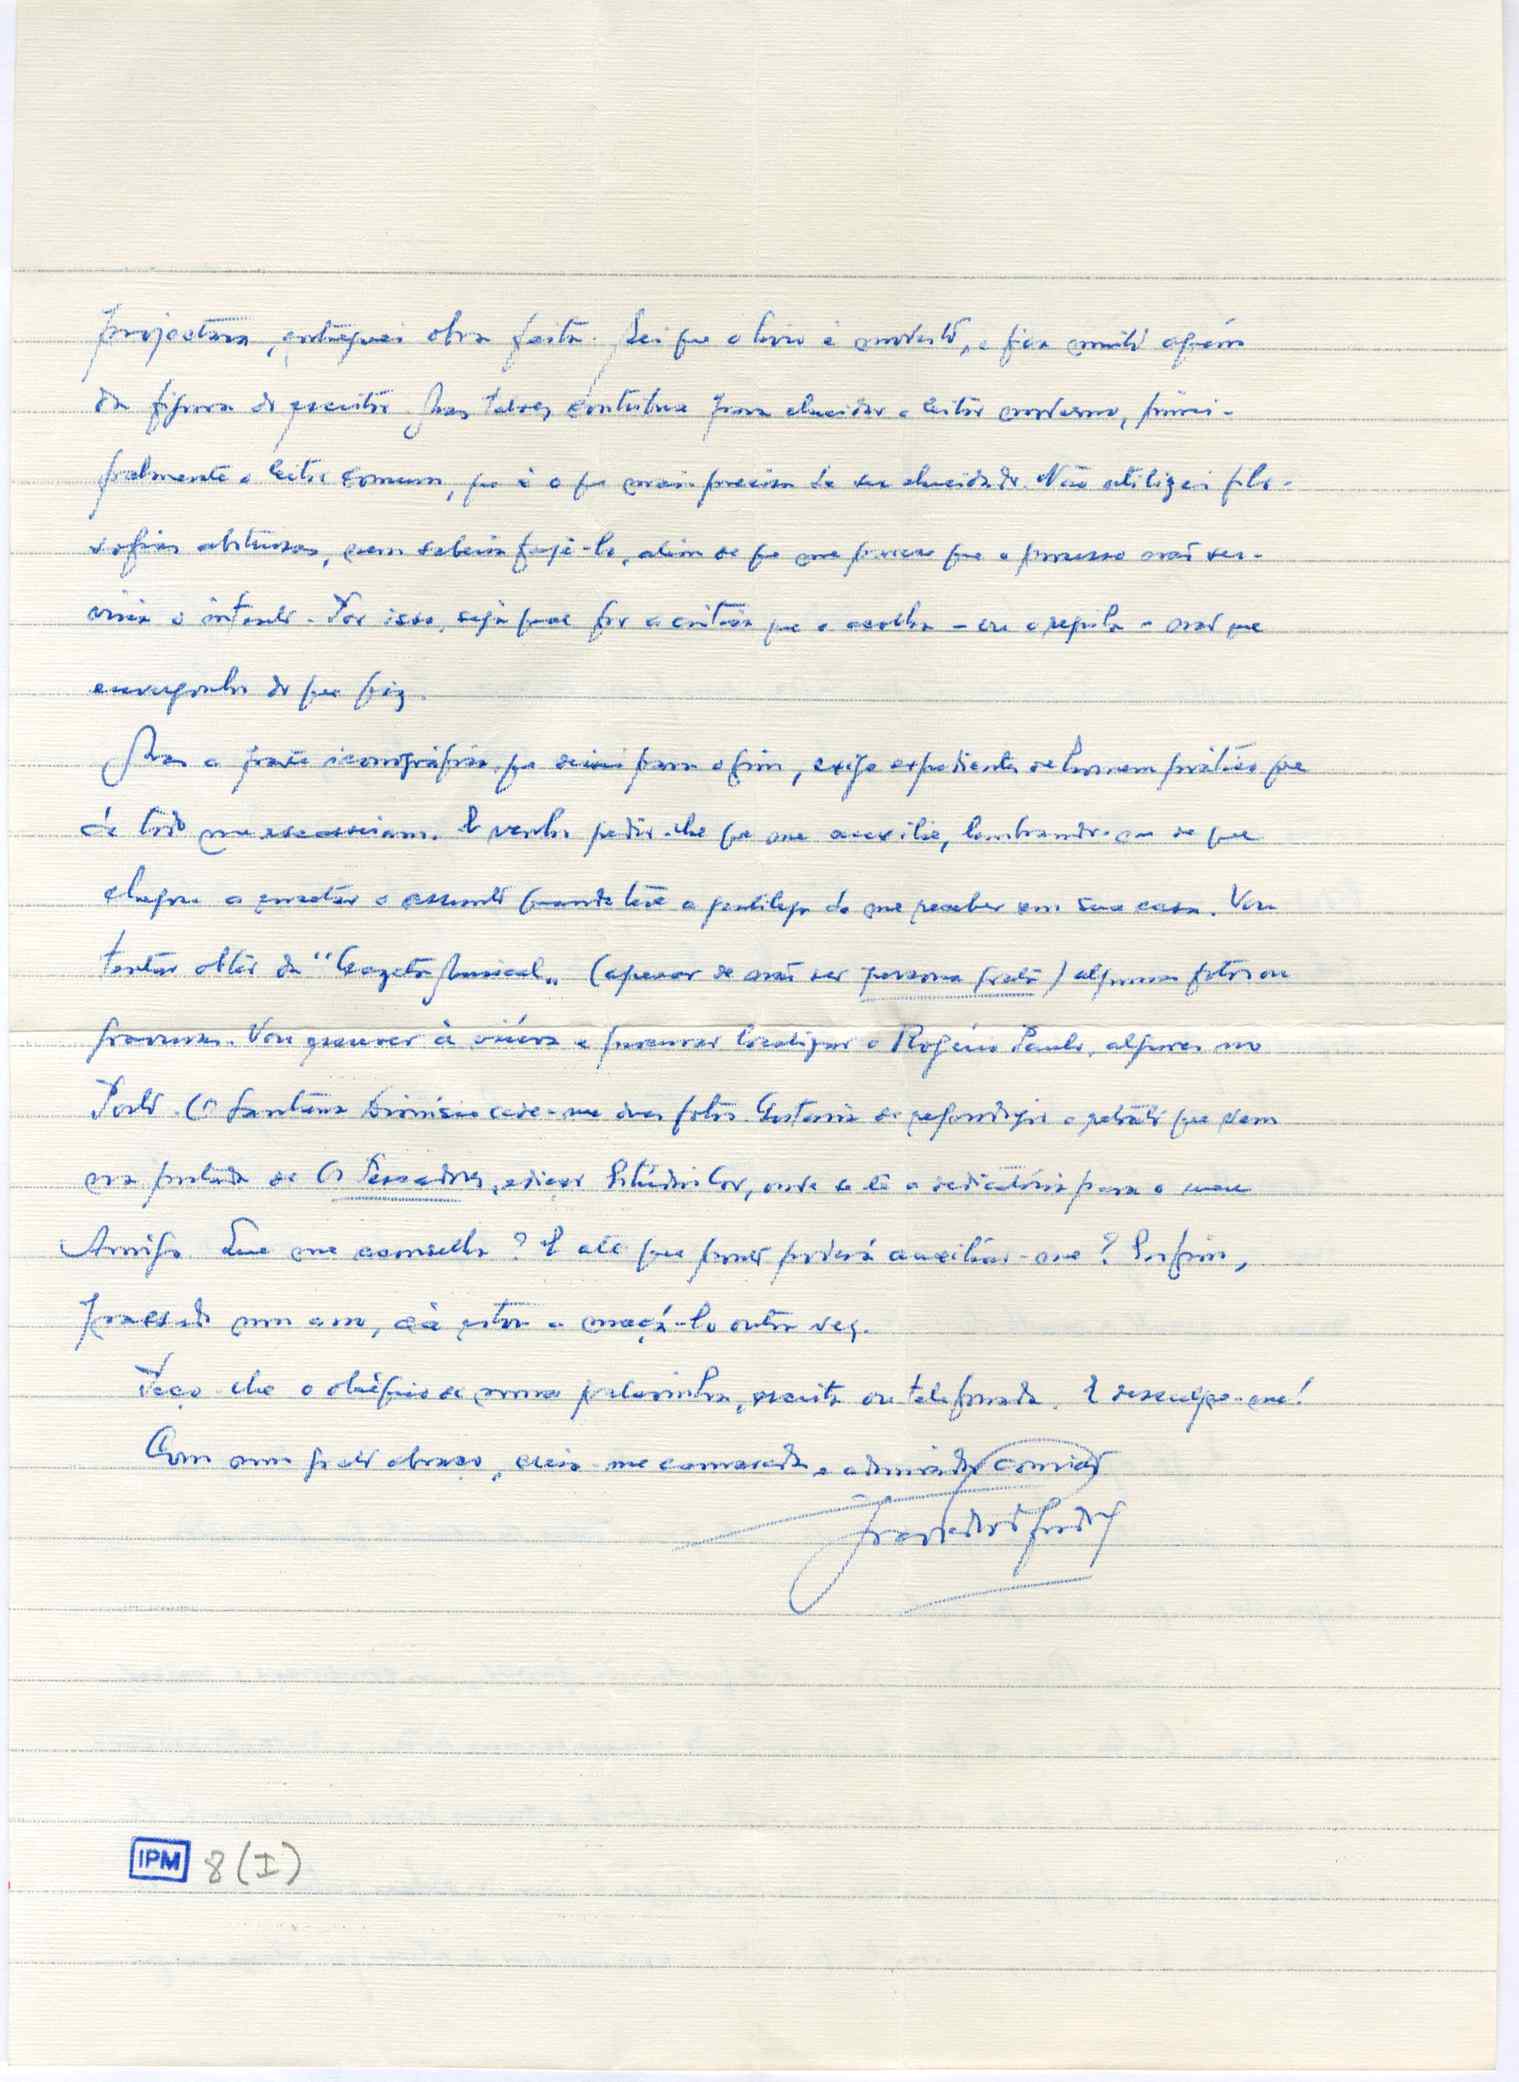 projectara, entreguei obra feita. Sei que o livro é modesto, e fica muito aquém
da figura do escritor. Mas talvez contribua para elucidar o leitor moderno, princi-
palmente o leitor comum, que é o que mais precisa de ser elucidado. Não utilizei filo-
sofias abstrusas, nem saberia fazê-lo, além de que me parece que o processo não ser-
viria o intento. Por isso, seja qual for a crítica que o acolha - ou o repila - não me
envergonho do que fiz.
Mas a parte iconográfica, que deixei para o fim, exige expedientes de homem prático que
de todo me escasseiam. E venho pedir-lhe que me auxilie, lembrando-me de que
cheguei a encetar o assunto quando teve a gentileza de me receber em sua casa. Vou
tentar obter da "Gazeta Musical" (apesar de não ser persona grata) algumas fotos ou
gravuras. Vou escrever à viúva e procurar localizar o Rogério Paulo, algures no
Porto. O Santana Dionísio cede-me duas fotos. Gostaria de reproduzir o retrato que vem
na portada de Os Pescadores, edição Estúdios Cor, onde se lê a dedicatória para o meu
Amigo. Que me aconselha? E até que ponto poderá auxiliar-me? Enfim,
passado um ano, cá estou a maçá-lo outra vez.
Peço-lhe o obséquio de uma palavrinha, escrita ou telefonada. E desculpe-me!
Com um grato abraço, creia-me camarada e admirador
IPM 8 (I)